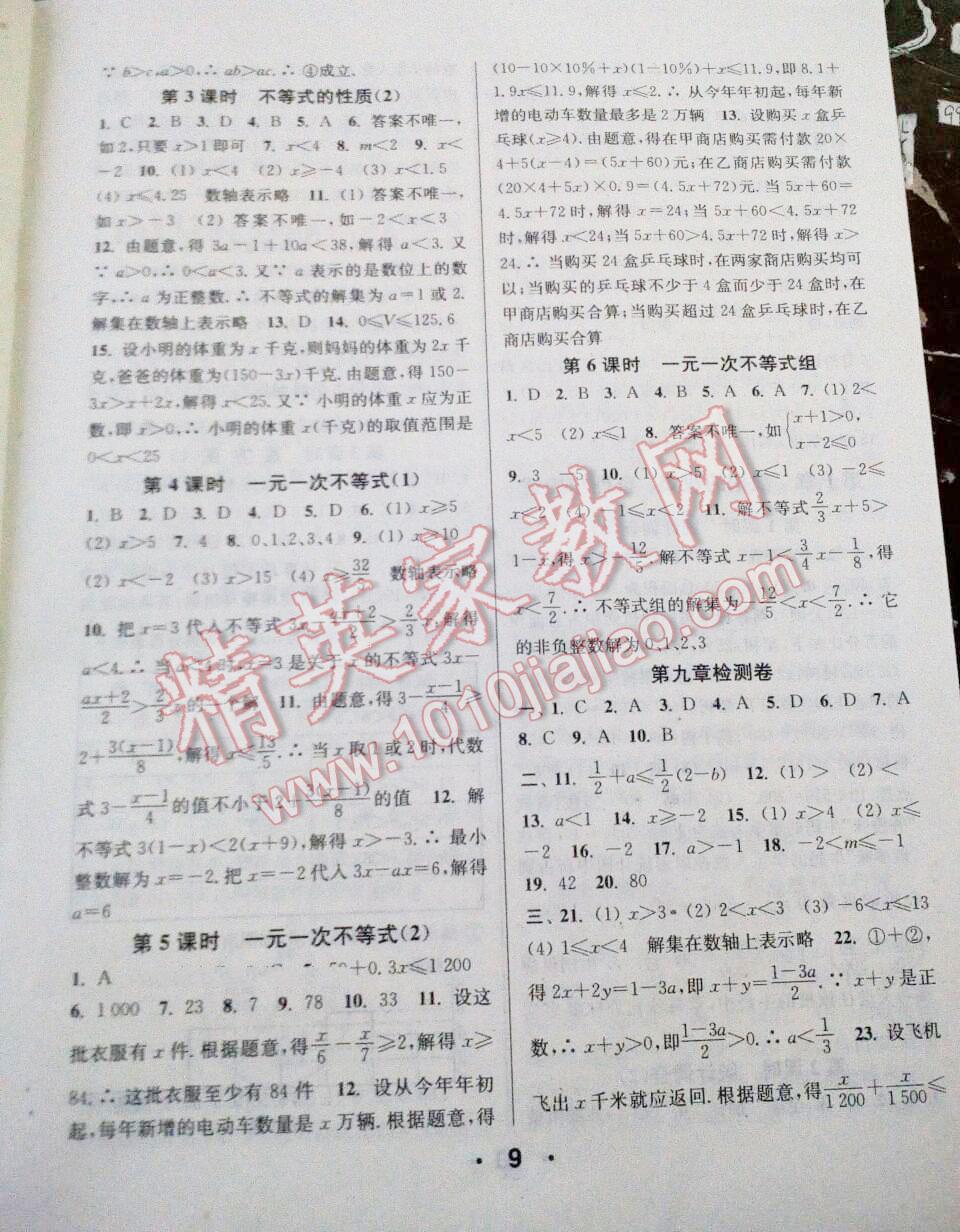 ∵ b>c,a>0,∴ ab>ac.∴ ④成立.
第 3 课时 不等式的性质(2)
1. C 2. B 3. D 4. B 5. A 6. 答案不唯一,
如 2,只要 x>1 即可 7. x<4 8. m<2 9. x<
-2 10. (1) x<4 (2) x≥-4 (3) x<1.5
(4) x≤4.25 数轴表示略 11. (1) 答案不唯一,
如 x>-3 (2) 答案不唯一,如-2<x<3
12. 由题意,得 3a-1+10a<38,解得 a<3. 又
∵ a>0,∴ 0<a<3. 又∵ a 表示的是数位上的数
字,∴ a 为正整数. ∴ 不等式的解集为 a=1 或 2.
解集在数轴上表示略 13. D 14. 0≤V≤125.6
15. 设小明的体重为 x 千克,则妈妈的体重为 2x 千
克,爸爸的体重为(150-3x)千克. 由题意,得 150-
3x>x+2x,解得 x<25. 又∵ 小明的体重 x 应为正
数,即 x>0,∴ 小明的体重 x(千克)的取值范围是
0<x<25
第 4 课时 一元一次不等式(1)
1. B 2. D 3. D 4. D 5. D 6. (1) x≥5
(2) x>5 7. 4 8. 0、1、2、3、4 9. (1) x≥10
(2) x<-2 (3) x>15 (4) x≥32/ 数轴表示略
10. 把 x=3 代入不等式 3x-(ax+2)/2>2/3x,解得
a<4. ∴ 当 a<4 时,x=3 是关于 x 的不等式 3x-
(ax+2)/2>2/3x 的一个解 11. 由题意,得 3-(x-1)/4≥
2+3(x-1)/8,解得 x≤13/5. ∴ 当 x 取 1 或 2 时,代数
式 3-(x-1)/4 的值不小于 2+3(x-1)/8 的值 12. 解
不等式 3(1-x)<2(x+9),解得 x>-3. ∴ 最小
整数解为 x=-2. 把 x=-2 代入 3x-ax=6,解得
a=6
第 5 课时 一元一次不等式(2)
1. A +0.3x≤1 200
6. 1 000 7. 23 8. 7 9. 78 10. 33 11. 设这
批衣服有 x 件. 根据题意,得 x/6-x/7≥2,解得 x≥
84. ∴ 这批衣服至少有 84 件 12. 设从今年年初
起,每年新增的电动车数量是 x 万辆. 根据题意,得
(10-10×10%+x)(1-10%)+x≤11.9,即 8.1+
1.9x≤11.9,解得 x≤2. ∴ 从今年年初起,每年新
增的电动车数量最多是 2 万辆 13. 设购买 x 盒乒
乓球(x≥4). 由题意,得在甲商店购买需付款 20×
4+5(x-4)=(5x+60)元,在乙商店购买需付款
(20×4+5x)×0.9=(4.5x+72)元. 当 5x+60=
4.5x+72 时,解得 x=24;当 5x+60<4.5x+72
时,解得 x<24;当 5x+60>4.5x+72 时,解得 x>
24. ∴ 当购买 24 盒乒乓球时,在两家商店购买均可
以;当购买的乒乓球不少于 4 盒而少于 24 盒时,在
甲商店购买合算;当购买超过 24 盒乒乓球时,在乙
商店购买合算
第 6 课时 一元一次不等式组
1. D 2. B 3. A 4. B 5. A 6. A 7. (1) 2<
x<5 (2) x≤1 8. 答案不唯一,如{x+1>0,
x-2≤0
9. 3 -5 10. (1) x>5 (2) x≤1 (3) -2≤
x<2 (4) -1≤x<2 11. 解不等式 2/3x+5>
1-x,得 x>-12/5. 解不等式 x-1<3/4x-1/8,得
x<7/2. ∴ 不等式组的解集为-12/5<x<7/2. ∴ 它
的非负整数解为 0、1、2、3
第九章检测卷
一、1. C 2. A 3. D 4. A 5. D 6. D 7. A
8. C 9. A 10. B
二、11. 1/2+a≤1/2(2-b) 12. (1) > (2) <
13. a<1 14. x≥-2 15. (1) x>4 (2) x≤
-2 16. -2 17. a>-1 18. -2<m≤-1
19. 42 20. 80
三、21. (1) x>3 (2) 2<x<3 (3) -6<x≤13
(4) 1≤x<4 解集在数轴上表示略 22. ①+②,
得 2x+2y=1-3a,即 x+y=(1-3a)/2. ∵ x+y 是正
数,∴ x+y>0,即(1-3a)/2>0. ∴ a<1/3 23. 设飞机
飞出 x 千米就应返回. 根据题意,得 x/1 200+x/1 500≤
· 9 ·
精英家教网
www.1010jiajiao.com